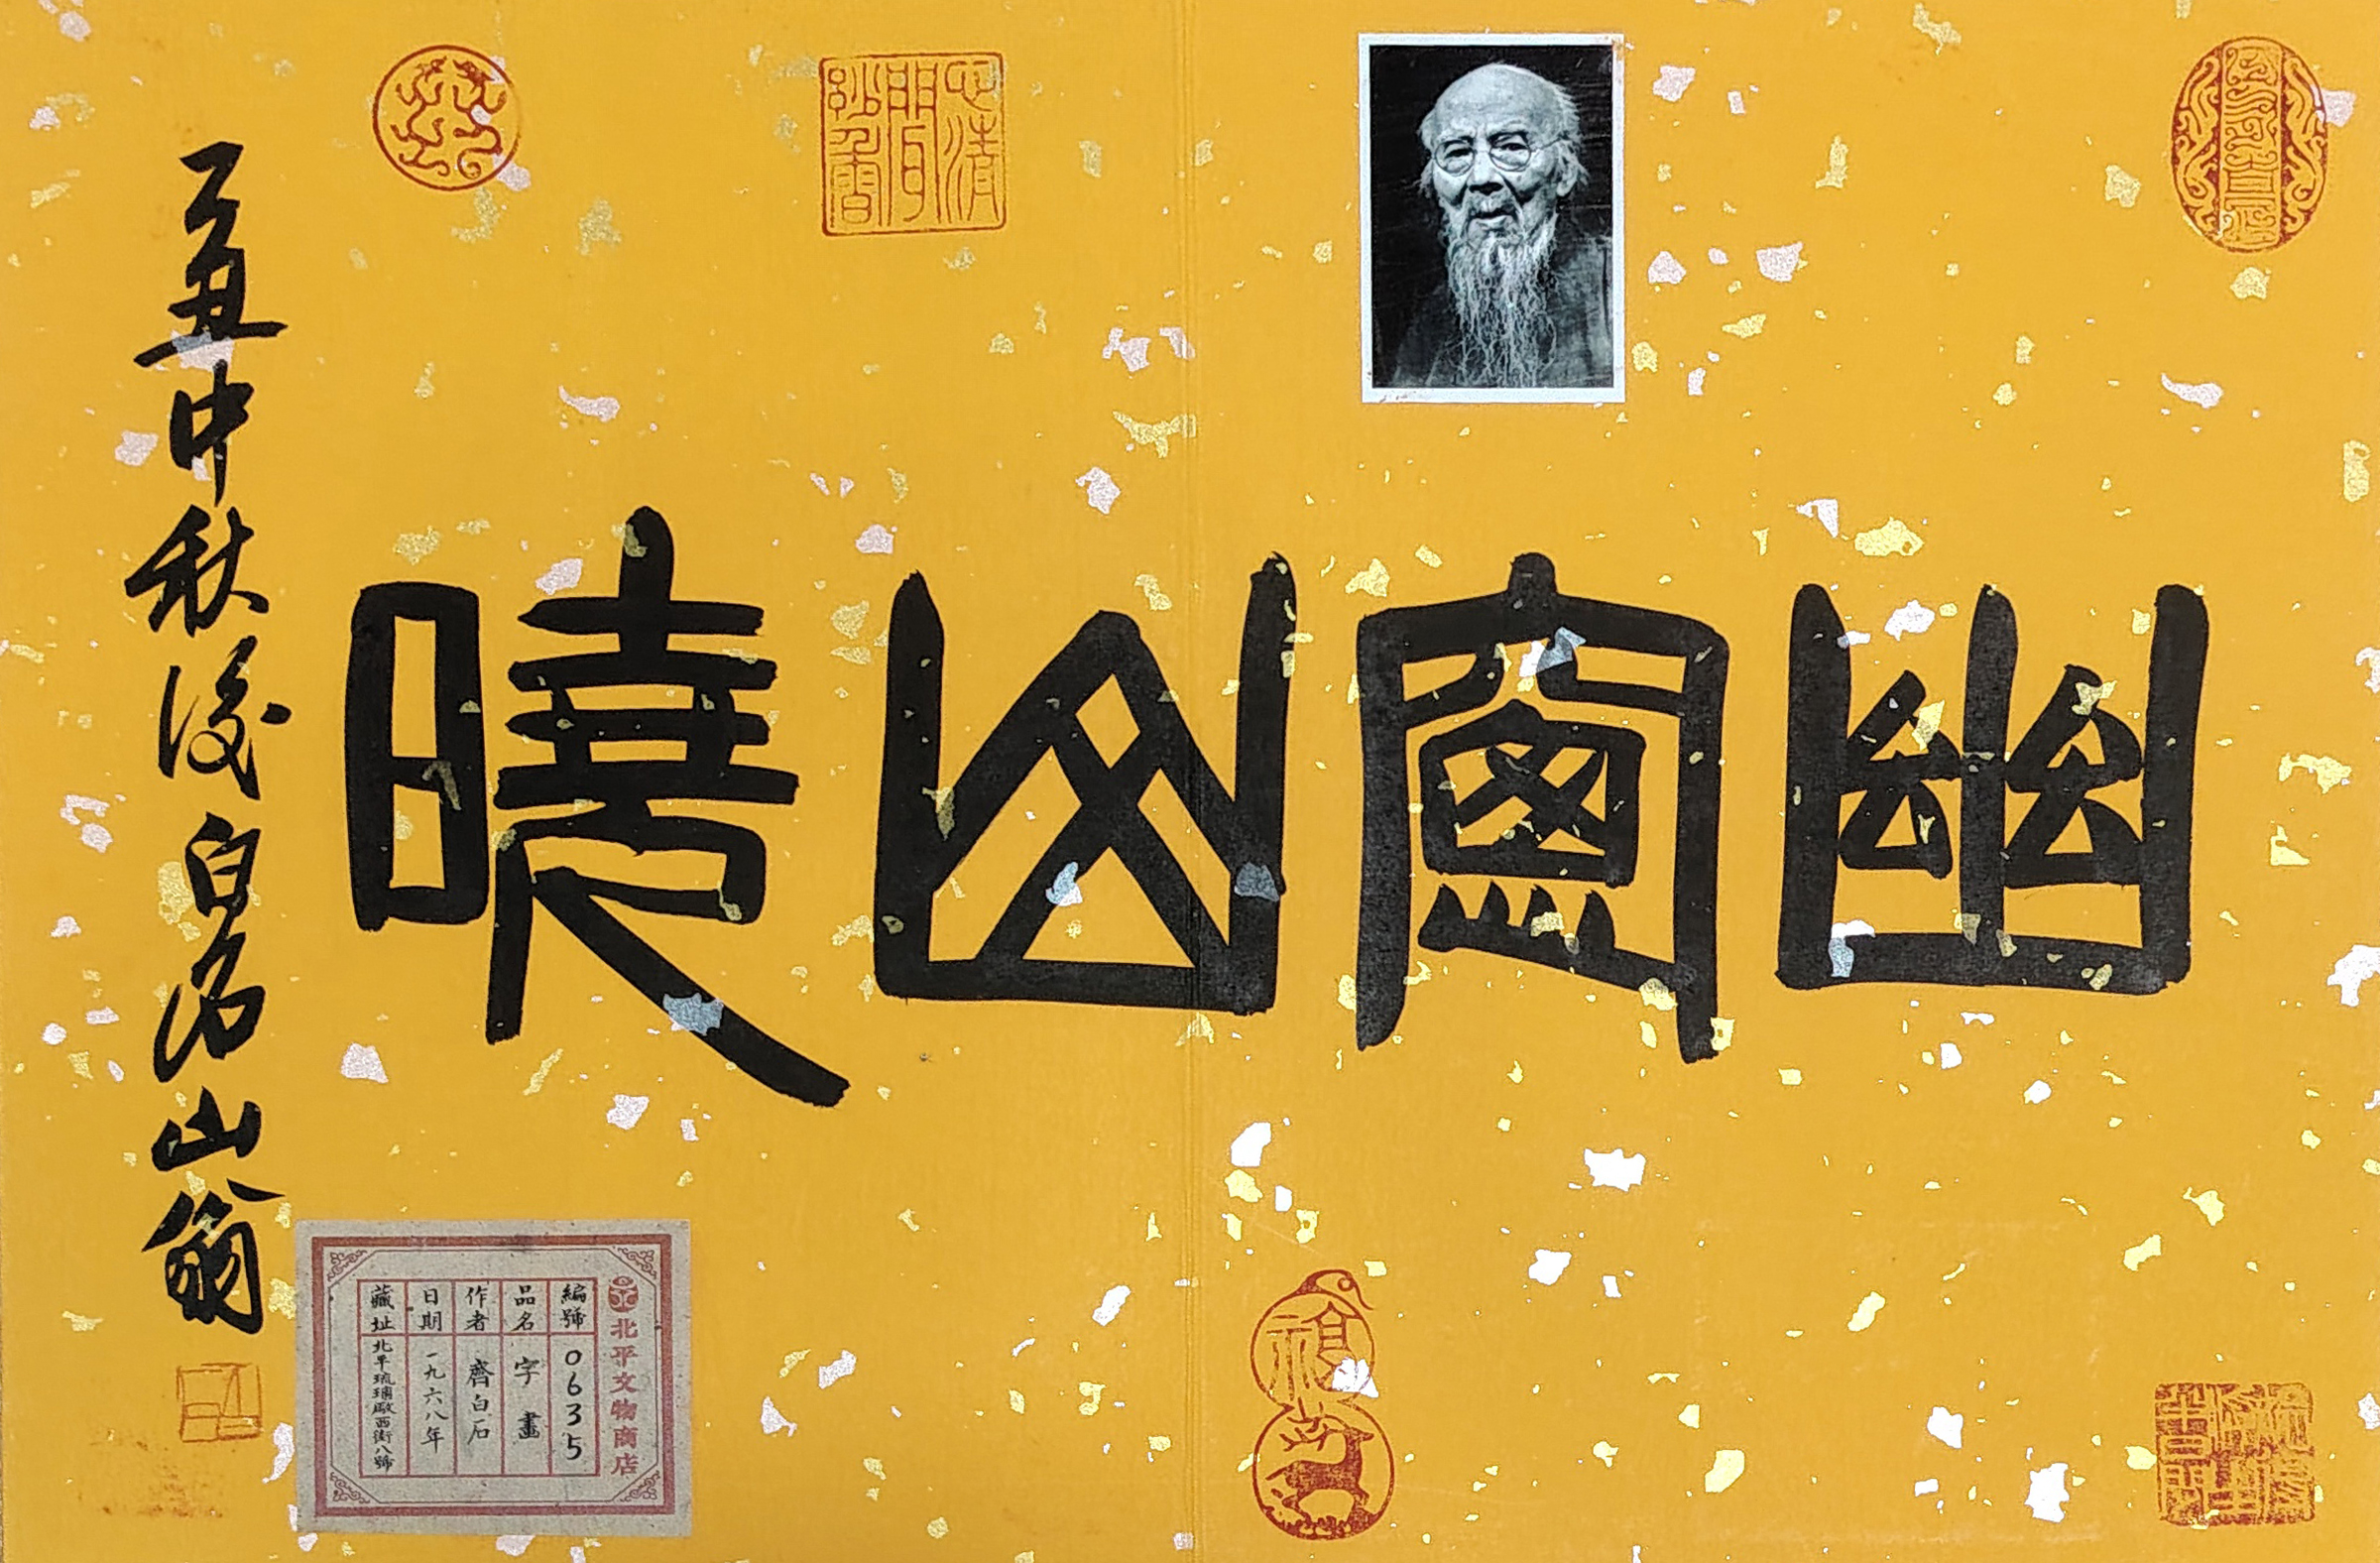 幽窗山曉
己丑中秋後白石山翁
心清聞妙香
北平文物商店
編號 0635
品名 字畫
作者 齊白石
日期 一九六八年
藏址 北平琉璃廠西街八號